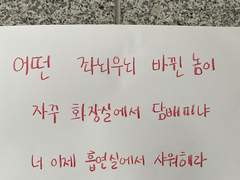 어떤 좌뇌우뇌 바뀐 놈이
자꾸 화장실에서 담배피냐
너 이제 흡연실에서 샤워해라